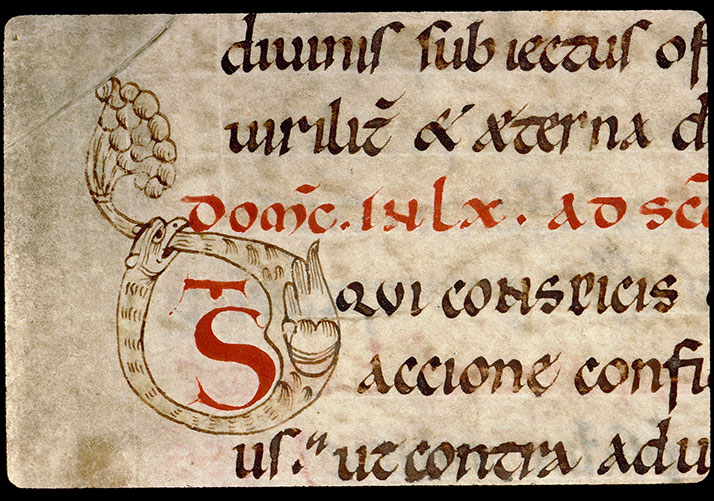 diuinis subiectus of
uirilit̄ & æterna d
Dom̄c. IN lx. AD Sc̄
DS̄ QUI CONSPICIS
accione confi
us." ut contra adu